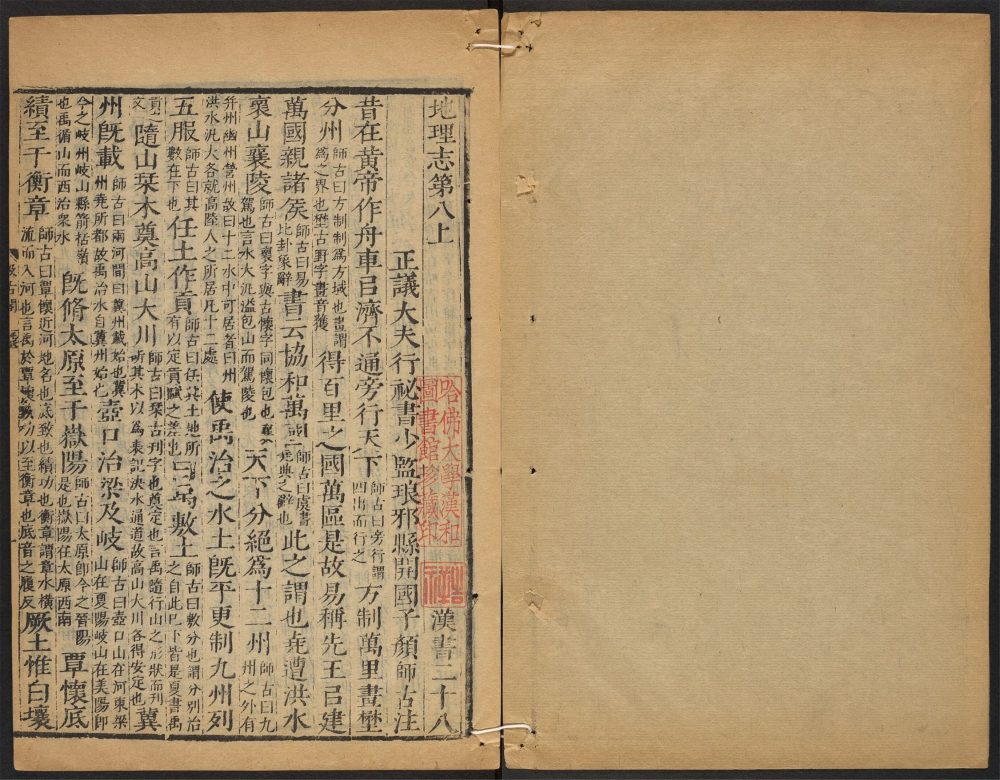 地理志第八上 漢書二十八
正議大夫行祕書少監琅邪縣開國子顏師古注
昔在黄帝作舟車㠯濟不通旁行天下師古曰旁行謂四出而行之方制萬里畫壄
分州師古曰方制制爲方域也畫謂爲之界也壄古野字畫音獲得百里之國萬區是故易稱先王㠯建
萬國親諸侯師古曰易比卦象辭書云協和萬國師古曰虞書堯典之辭也此之謂也堯遭洪水
襃山襄陵師古曰襃字與古懷字同懷包也襄駕也言水大汎溢包山而駕陵也天下分絕爲十二州師古曰九州之外有
幷州幽州營州故曰十二水中可居者曰州洪水汎大各就高陸人之所居凡十二處使禹治之水土旣平更制九州列
五服師古曰其數在下也任土作貢師古曰任其土地所有以定貢賦之差也曰禹敷土師古曰敷分也謂分別治之自此已下皆是夏書禹
貢之文隨山栞木奠高山大川師古曰栞古刊字也奠定也言禹隨行山之形狀而刊斫其木以爲表記決水通道故高山大川各得安定也冀
州旣載師古曰兩河間曰冀州載始也冀州堯所都故禹治水自冀州始也壺口治梁及岐師古曰壺口山在河東梁山在夏陽岐山在美陽卽
今之岐州岐山縣箭栝嶺也禹循山而西治衆水旣脩太原至于嶽陽師古曰太原卽今之晉陽是也嶽陽在太原西南覃懷底
績至于衡章師古曰覃懷近河地名也底致也績功也衡章謂章水橫流而入河也言禹於覃懷致功以至衡章也底音之履反厥土惟白壤
哈佛大學漢和
圖書館珍藏印